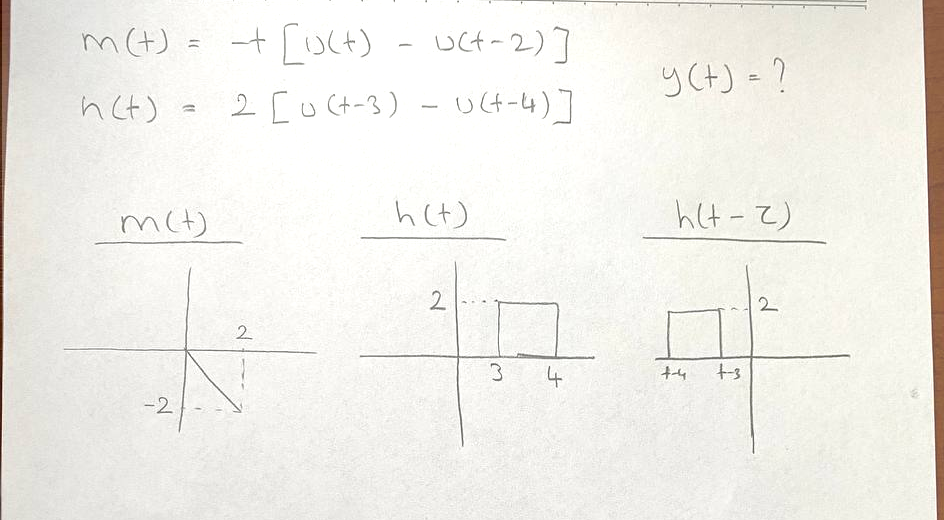 m(t) = -t [u(t) - u(t-2)]
h(t) = 2 [u(t-3) - u(t-4)]
y(t) = ?
m(t)
h(t)
h(t-τ)
2
-2
2
3
4
2
t-4
t-3